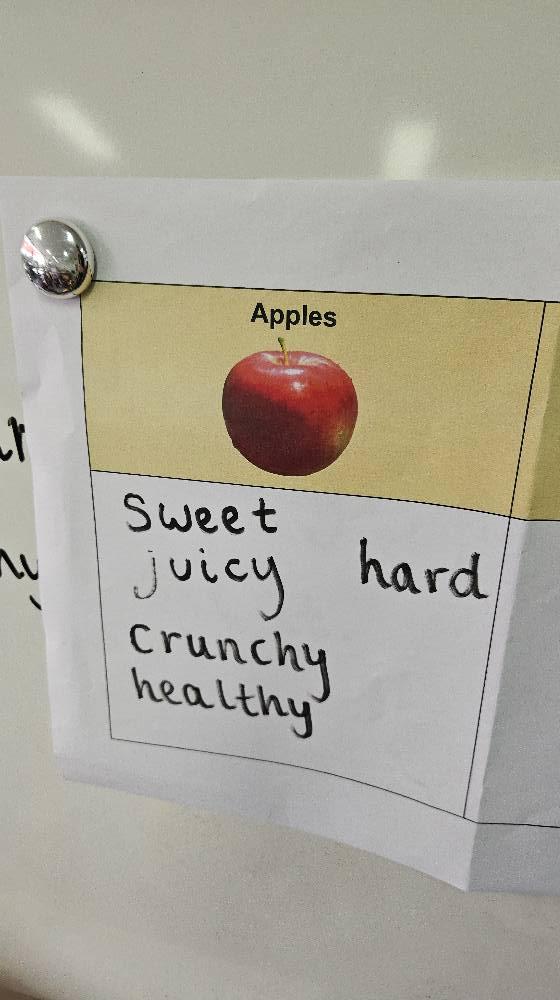 Apples
Sweet
juicy hard
crunchy
healthy